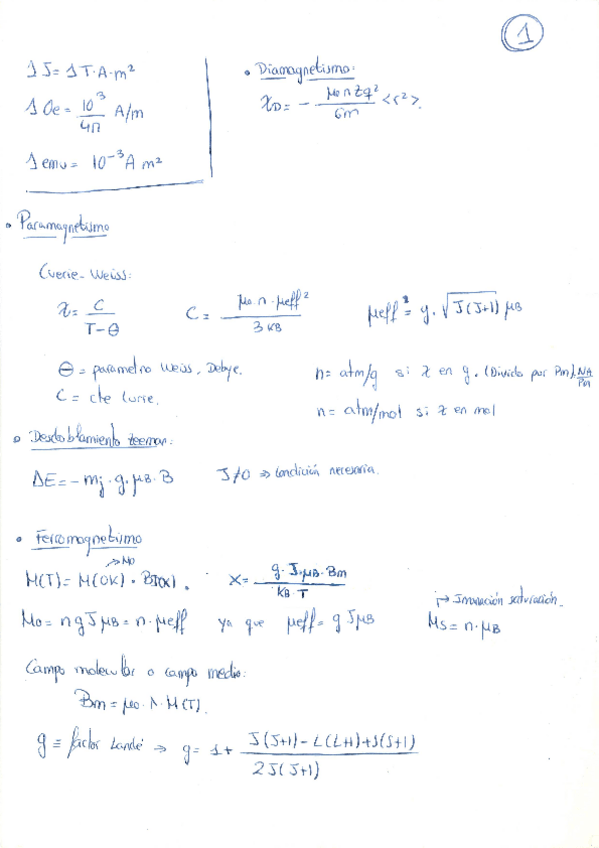 1
1 J = 1 T·A·m²
1 Oe = 10³/4π A/m
1 emu = 10⁻³ A m²
• Diamagnetismo:
χD = - μ₀ n Z q²/6m <r²>.
• Paramagnetismo
Curie-Weiss:
χ = C/T-θ    C = μ₀·n·μeff²/3 kB    μeff = g·√J(J+1) μB
θ = parametro Weiss, Debye.
C = cte Curie.
n = atm/g si χ en g. (Divido por Pm). NA/Pm
n = atm/mol si χ en mol
• Desdoblamiento Zeeman:
ΔE = - mj·g·μB·B    J≠0 ⇒ Condición necesaria.
• Ferromagnetismo
→ M₀
M(T) = M(0K)·BJ(x).    X = g·J·μB·Bm/kB·T
M₀ = n g J μB = n·μeff    ya que μeff = g J μB
↱ Imanación saturación.
Ms = n·μB
Campo molecular o campo medio:
Bm = μ₀·λ·M(T).
g ≡ factor Landé ⇒ g = 1 + J(J+1) - L(L+1) + S(S+1)/2J(J+1)